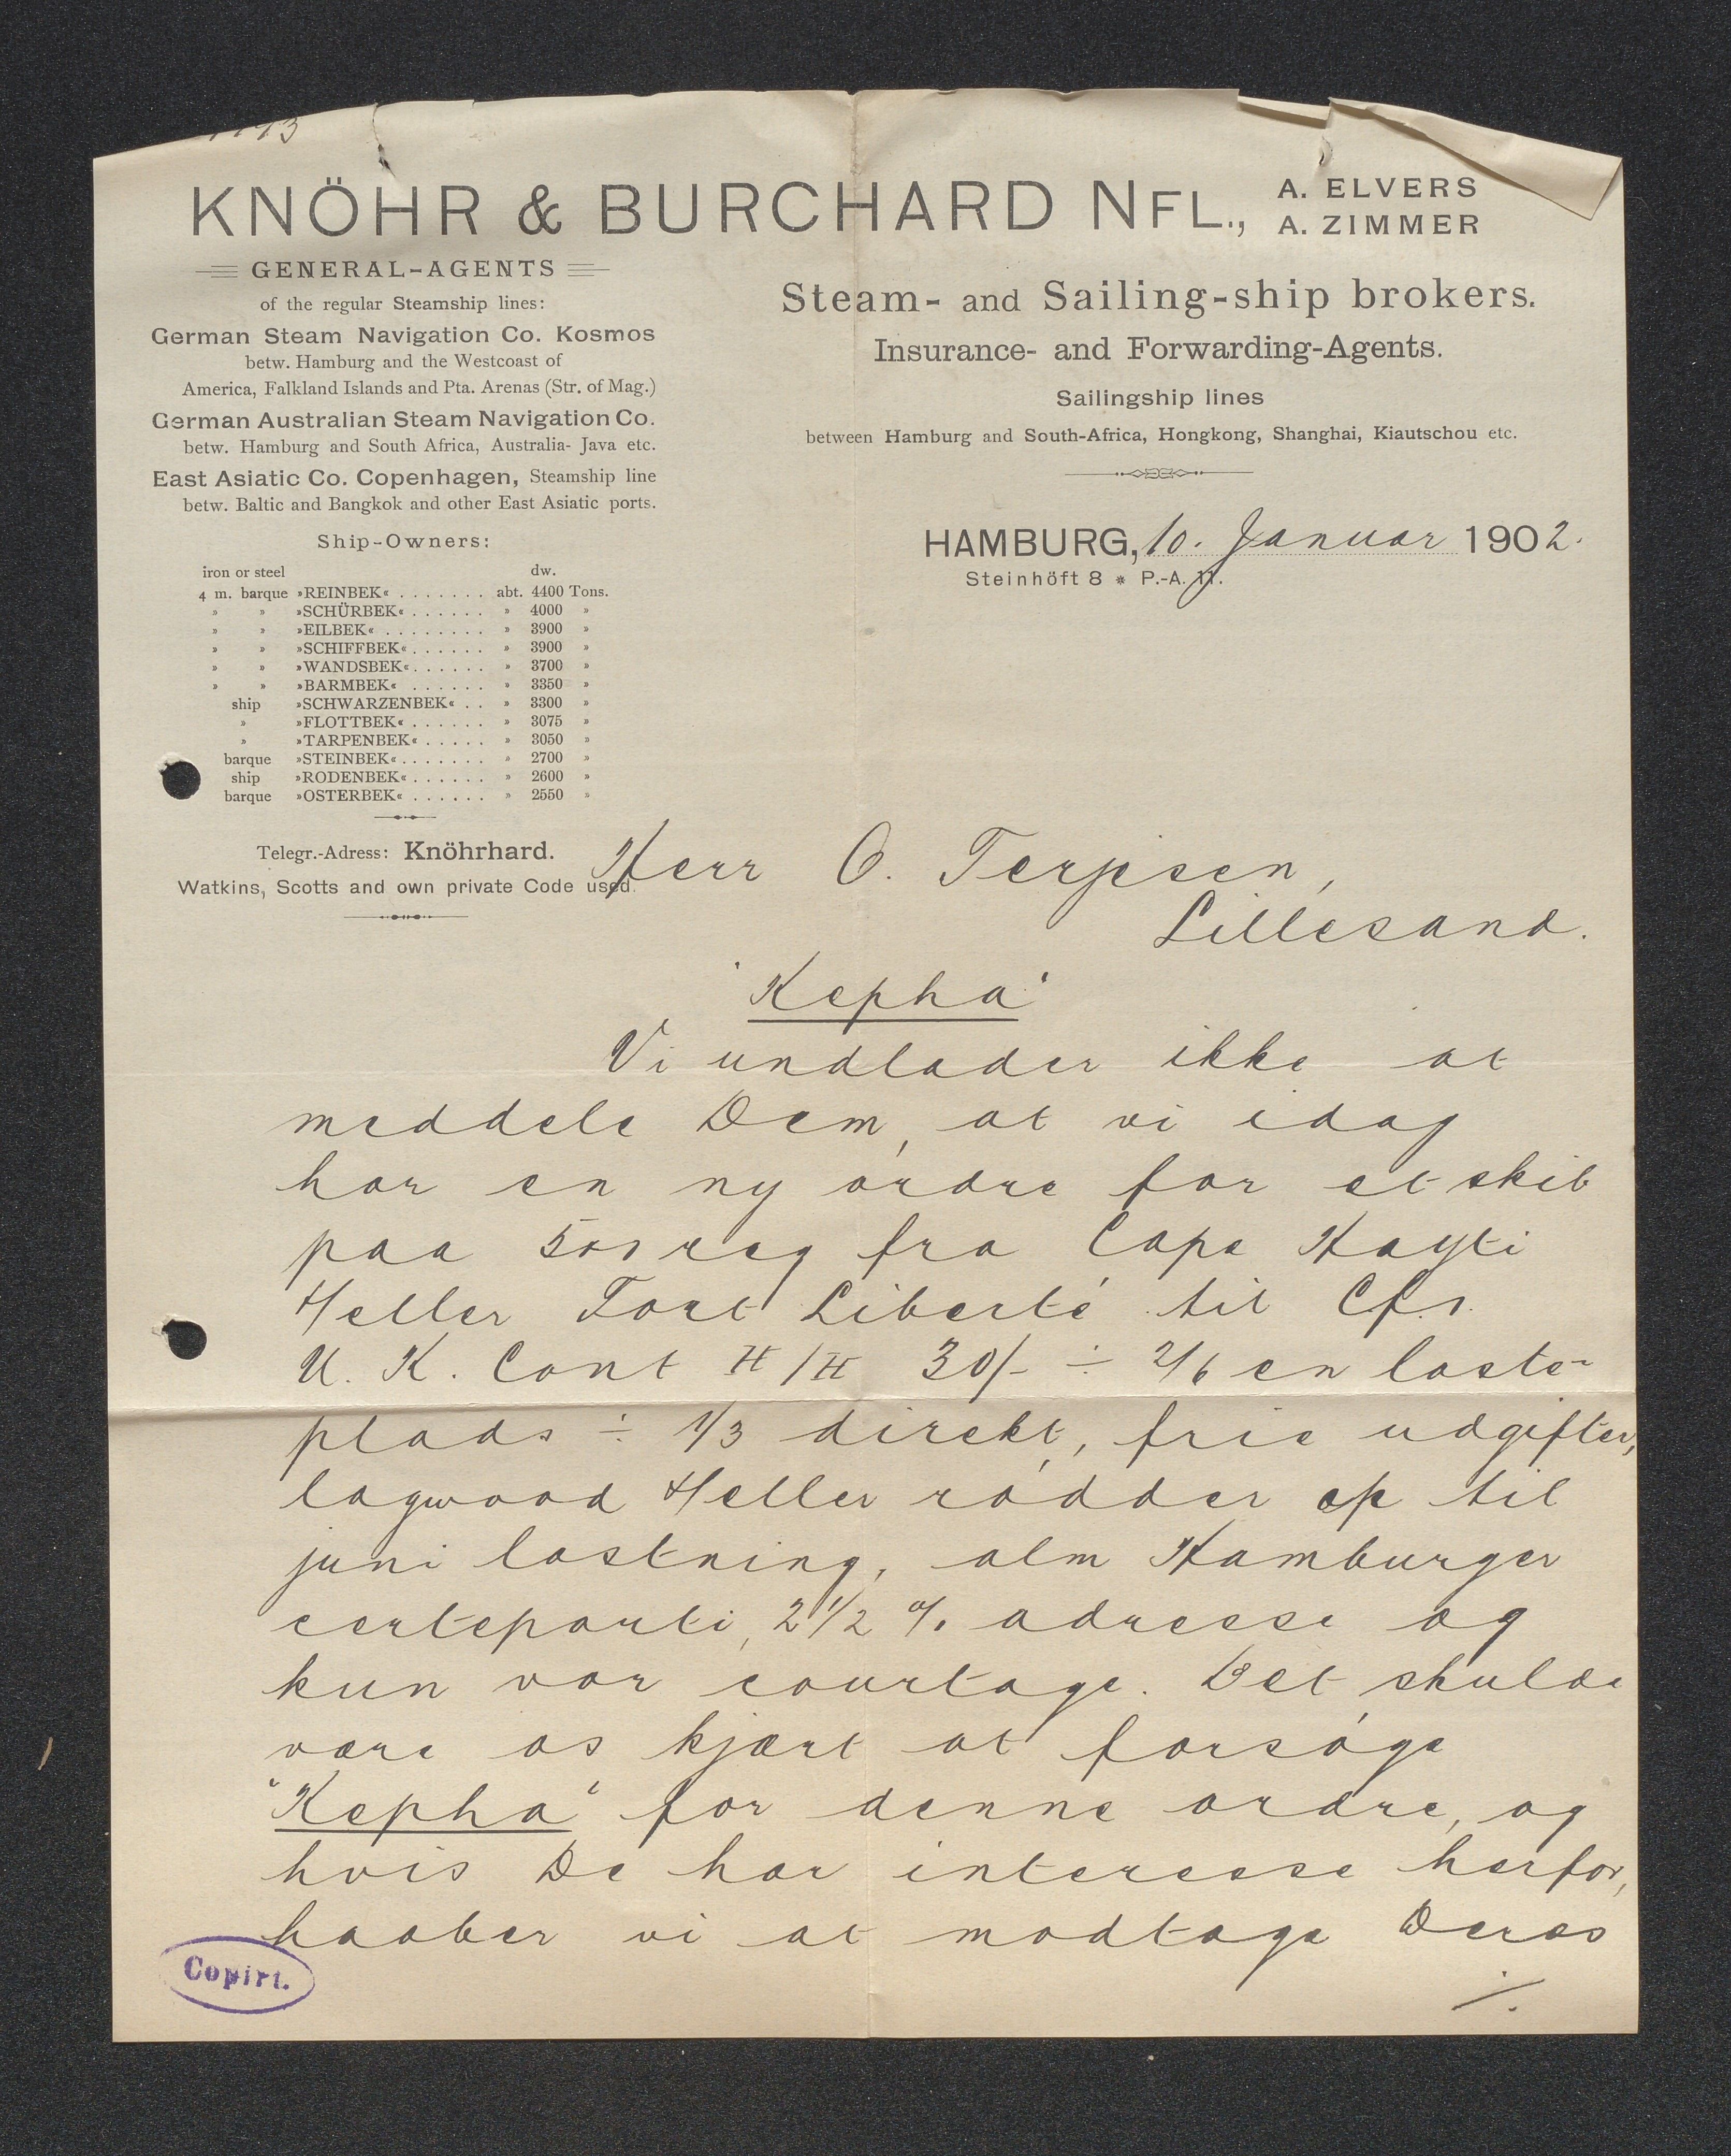 KNÖHR & BURCHARD NFL.,
A. ELVERS
A. ZIMMER
GENERAL-AGENTS
of the regular Steamship lines:
German Steam Navigation Co. Kosmos
betw. Hamburg and the Westcoast of
America, Falkland Islands and Pta. Arenas (Str. of Mag.)
German Australian Steam Navigation Co.
betw. Hamburg and South Africa, Australia- Java etc.
East Asiatic Co. Copenhagen, Steamship line
betw. Baltic and Bangkok and other East Asiatic ports.
Ship-Owners:
iron or steel dw.
4 m. barque »REINBEK« . . . . . . . abt. 4400 Tons.
» » »SCHÜRBEK« . . . . . . » 4000 »
» » »EILBEK« . . . . . . . . » 3900 »
» » »SCHIFFBEK« . . . . . . » 3900 »
» » »WANDSBEK« . . . . . . » 3700 »
» » »BARMBEK« . . . . . . » 3350 »
ship »SCHWARZENBEK« . . » 3300 »
» »FLOTTBEK« . . . . . . » 3075 »
» »TARPENBEK« . . . . . » 3050 »
barque »STEINBEK« . . . . . . . » 2700 »
ship »RODENBEK« . . . . . . » 2600 »
barque »OSTERBEK« . . . . . . » 2550 »
Telegr.-Adress: Knöhrhard.
Watkins, Scotts and own private Code used.
Steam- and Sailing-ship brokers.
Insurance- and Forwarding-Agents.
Sailingship lines
between Hamburg and South-Africa, Hongkong, Shanghai, Kiautschou etc.
HAMBURG, 10. Januar 1902.
Steinhöft 8 * P.-A. 11.
Herr O. Terjesen,
Lillesand.
"Kepha"
Vi undlader ikke at
meddele Dem, at vi idag
har en ny ordre for et skib
paa 500 reg fra Cape Hayti
Heller Fort Liberté til Cfs.
U. K. Cont H/H 30/- ÷ 2/6 en laste-
plads ÷ 1/3 direkt, frie udgifter,
logwood Heller rödder op til
juni lastning, alm Hamburger
certeparti, 2 1/2 % adresse og
kun vor courtage. Det skulde
være os kjært at forsöge
"Kepha" for denne ordre, og
hvis De har interesse herfor,
haaber vi at modtage Deres
./.
Copirt.